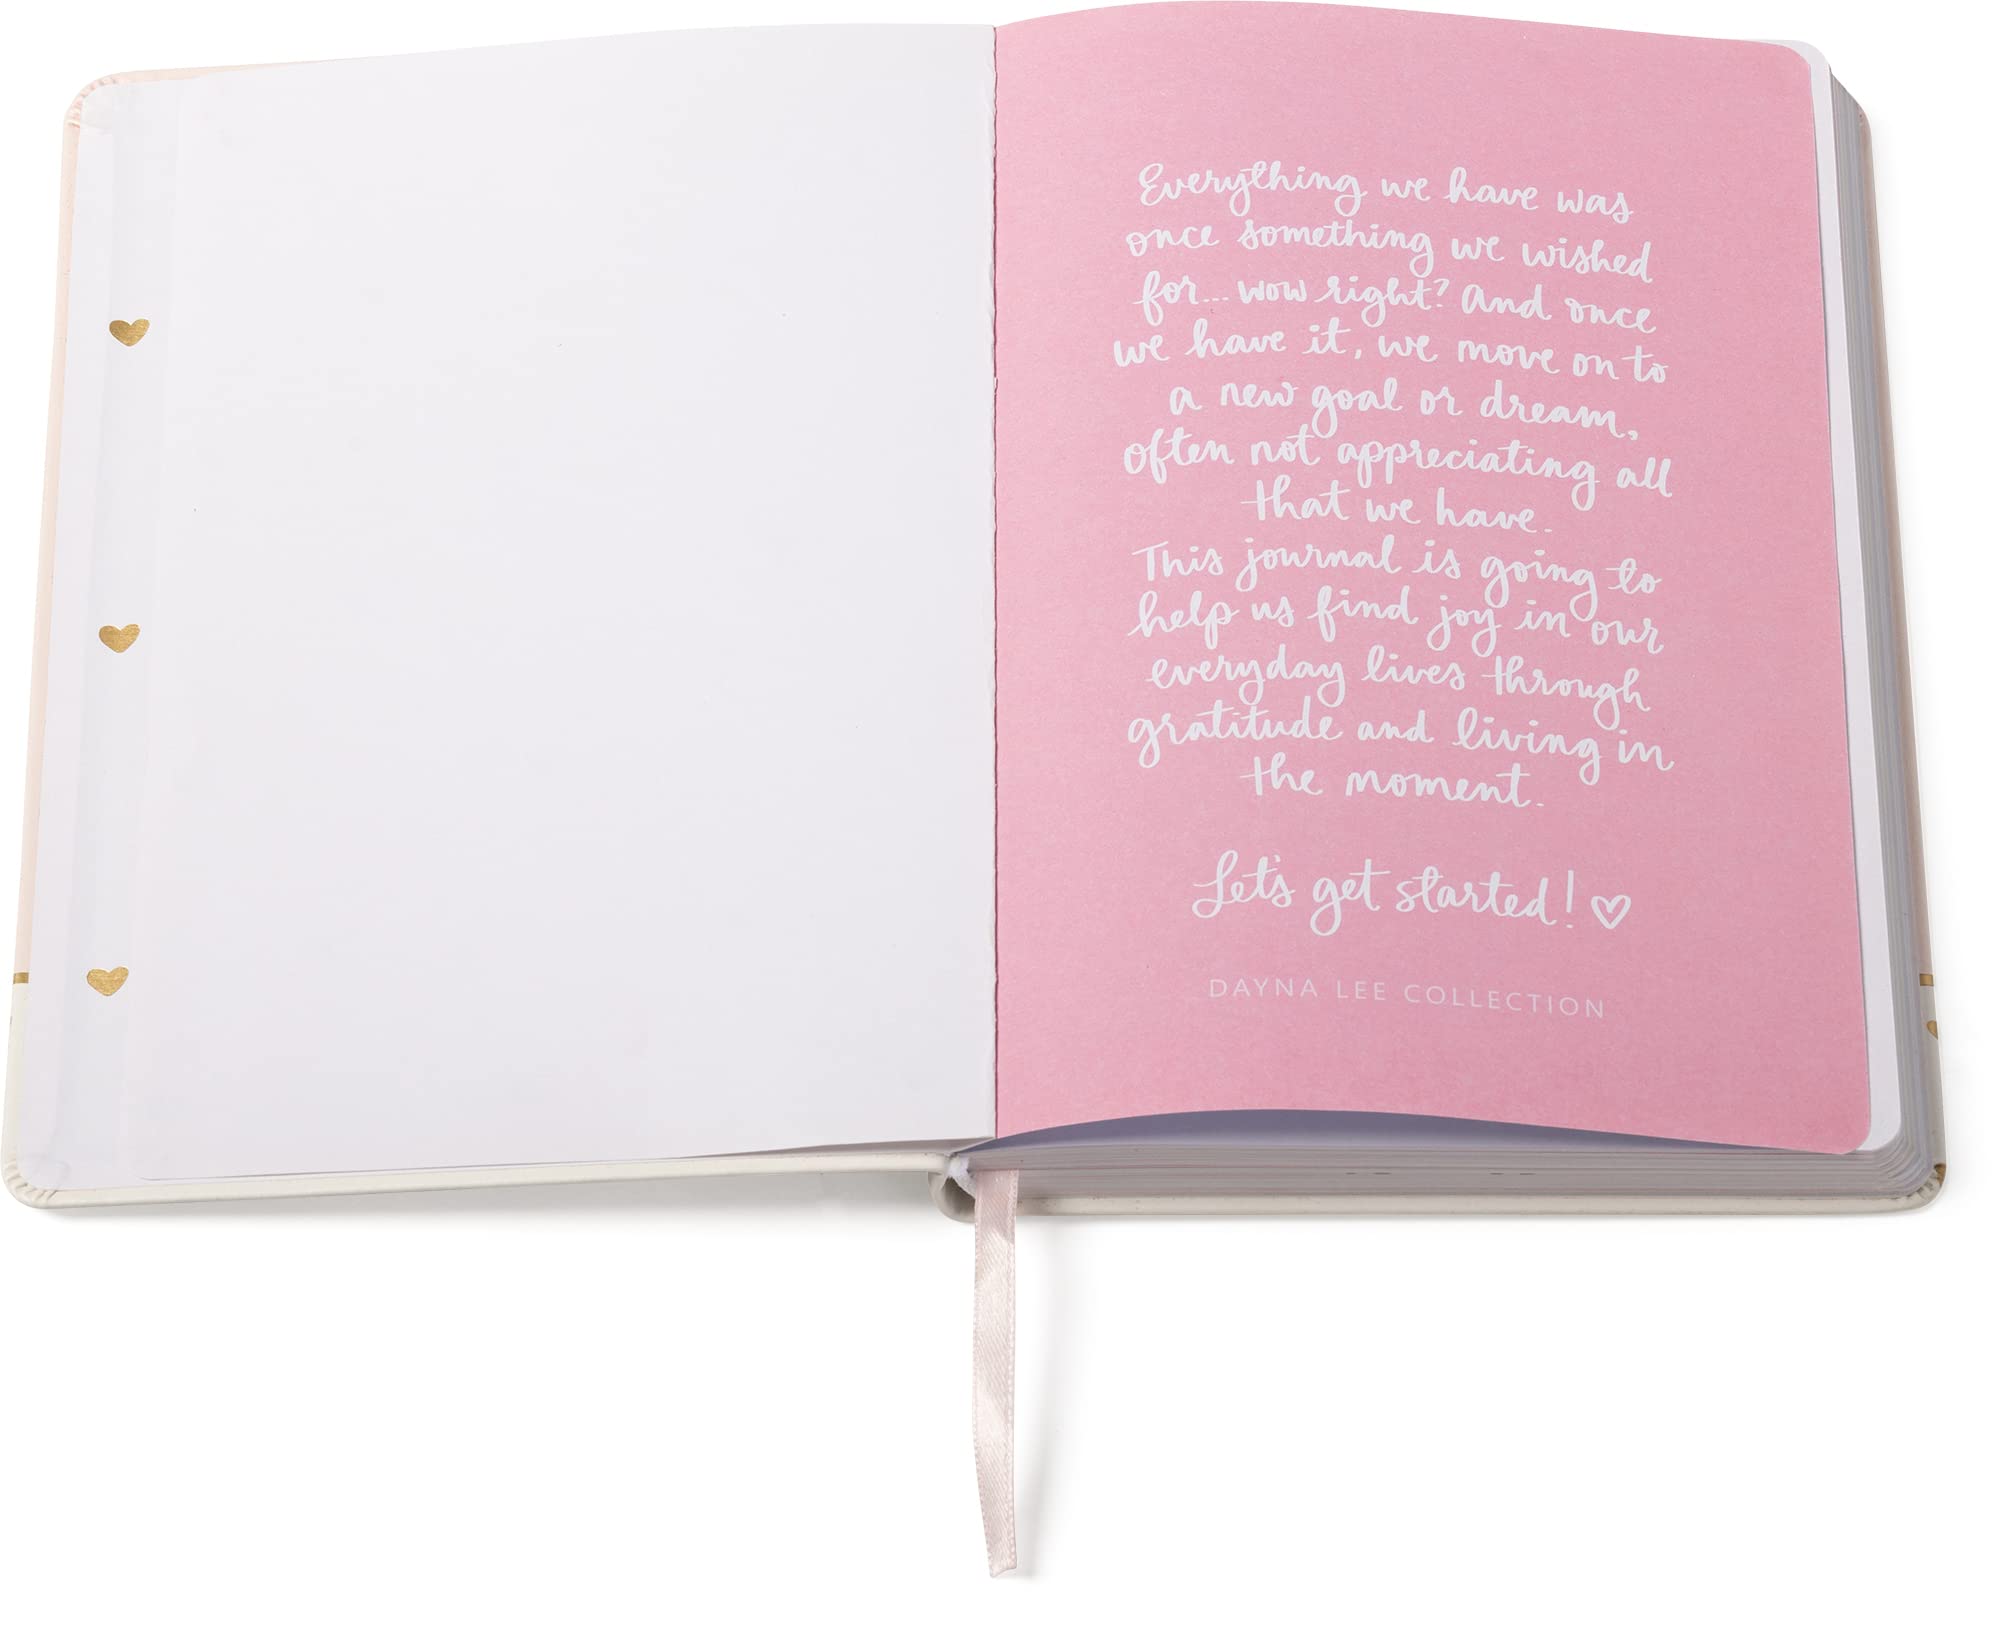 Everything we have was
once something we wished
for... wow right? And once
we have it, we move on to
a new goal or dream,
often not appreciating all
that we have.
This journal is going to
help us find joy in our
everyday lives through
gratitude and living in
the moment.
Let's get started!
DAYNA LEE COLLECTION